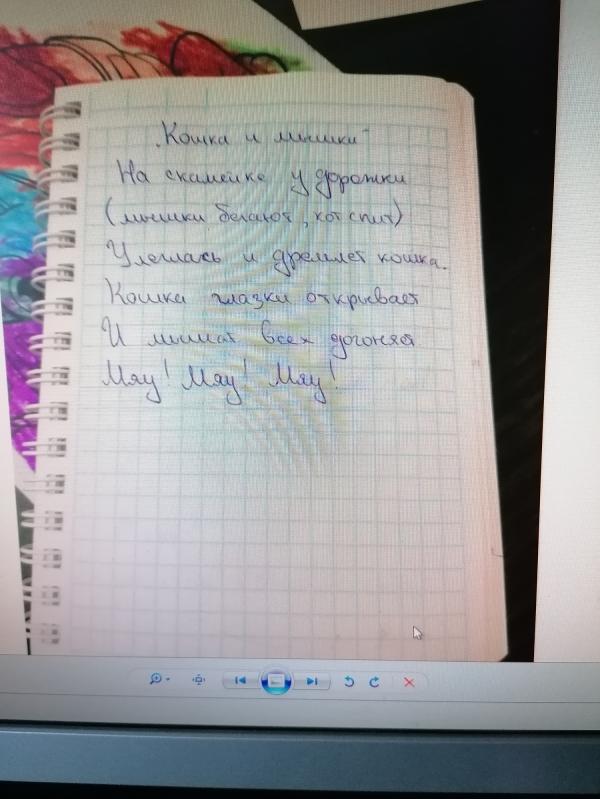 „Кошка и мышки"
На скамейке у дорожки
(мышки бегают, кот спит)
Улеглась и дремлет кошка.
Кошка глазки открывает
И мышат всех догоняет
Мяу! Мяу! Мяу!